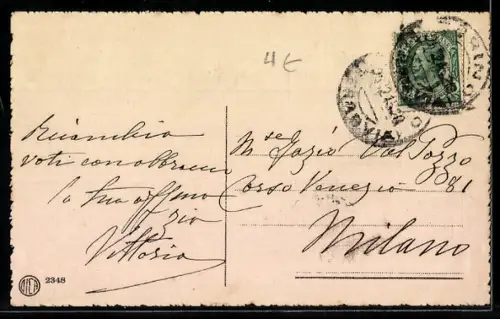 4€
Ricambia
voti con abbracci
la tua aff.ma
zia
Vittoria
Mse Fazio Dal Pozzo
Corso Venezia 81
Milano
2348